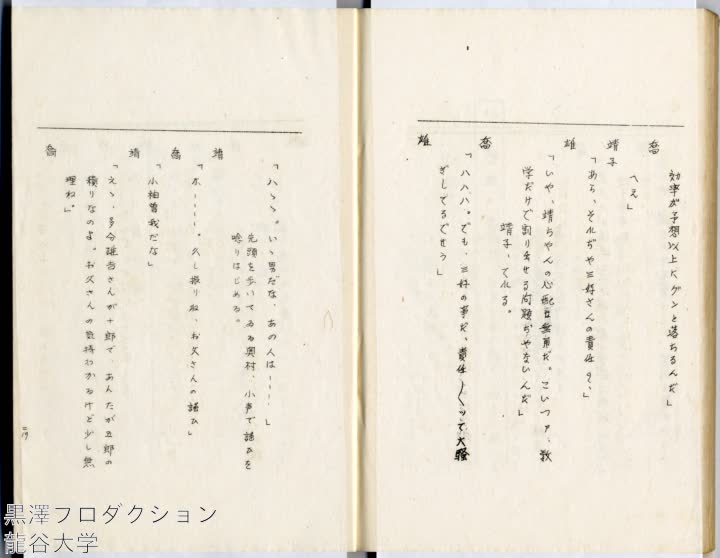 効率が予想以上にグンと落ちるんだ」
喬
「へえ」
靖子
「あら、それぢや三好さんの責任?」
雄
「いや、靖ちやんの心配は無用だ。こいつァ、数
学だけで割り出せる問題ぢやないんだ」
靖子、てれる。
喬
「ハハハ。でも、三好の事だ、責任〱つて大騒
ぎしてるでせう」
雄
「ハヽヽ。いゝ男だな、あの人は‥‥‥」
先頭を歩いてゐる奥村、小声で謡ひを
唸りはじめる。
靖
「ホ‥‥‥。久し振りね、お父さんの謡ひ」
喬
「小袖曽我だな」
靖
「えゝ、多分雄吉さんが十郎で、あんたが五郎の
積りなのよ。お父さんの気持わかるけど少し無
理ね」
喬
黒澤プロダクション
龍谷大学